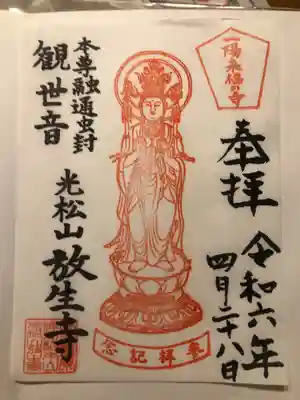 一陽来福の寺
奉拝
令和六年
四月二十八日
本尊融通虫封
観世音
光松山 放生寺
參拝記念